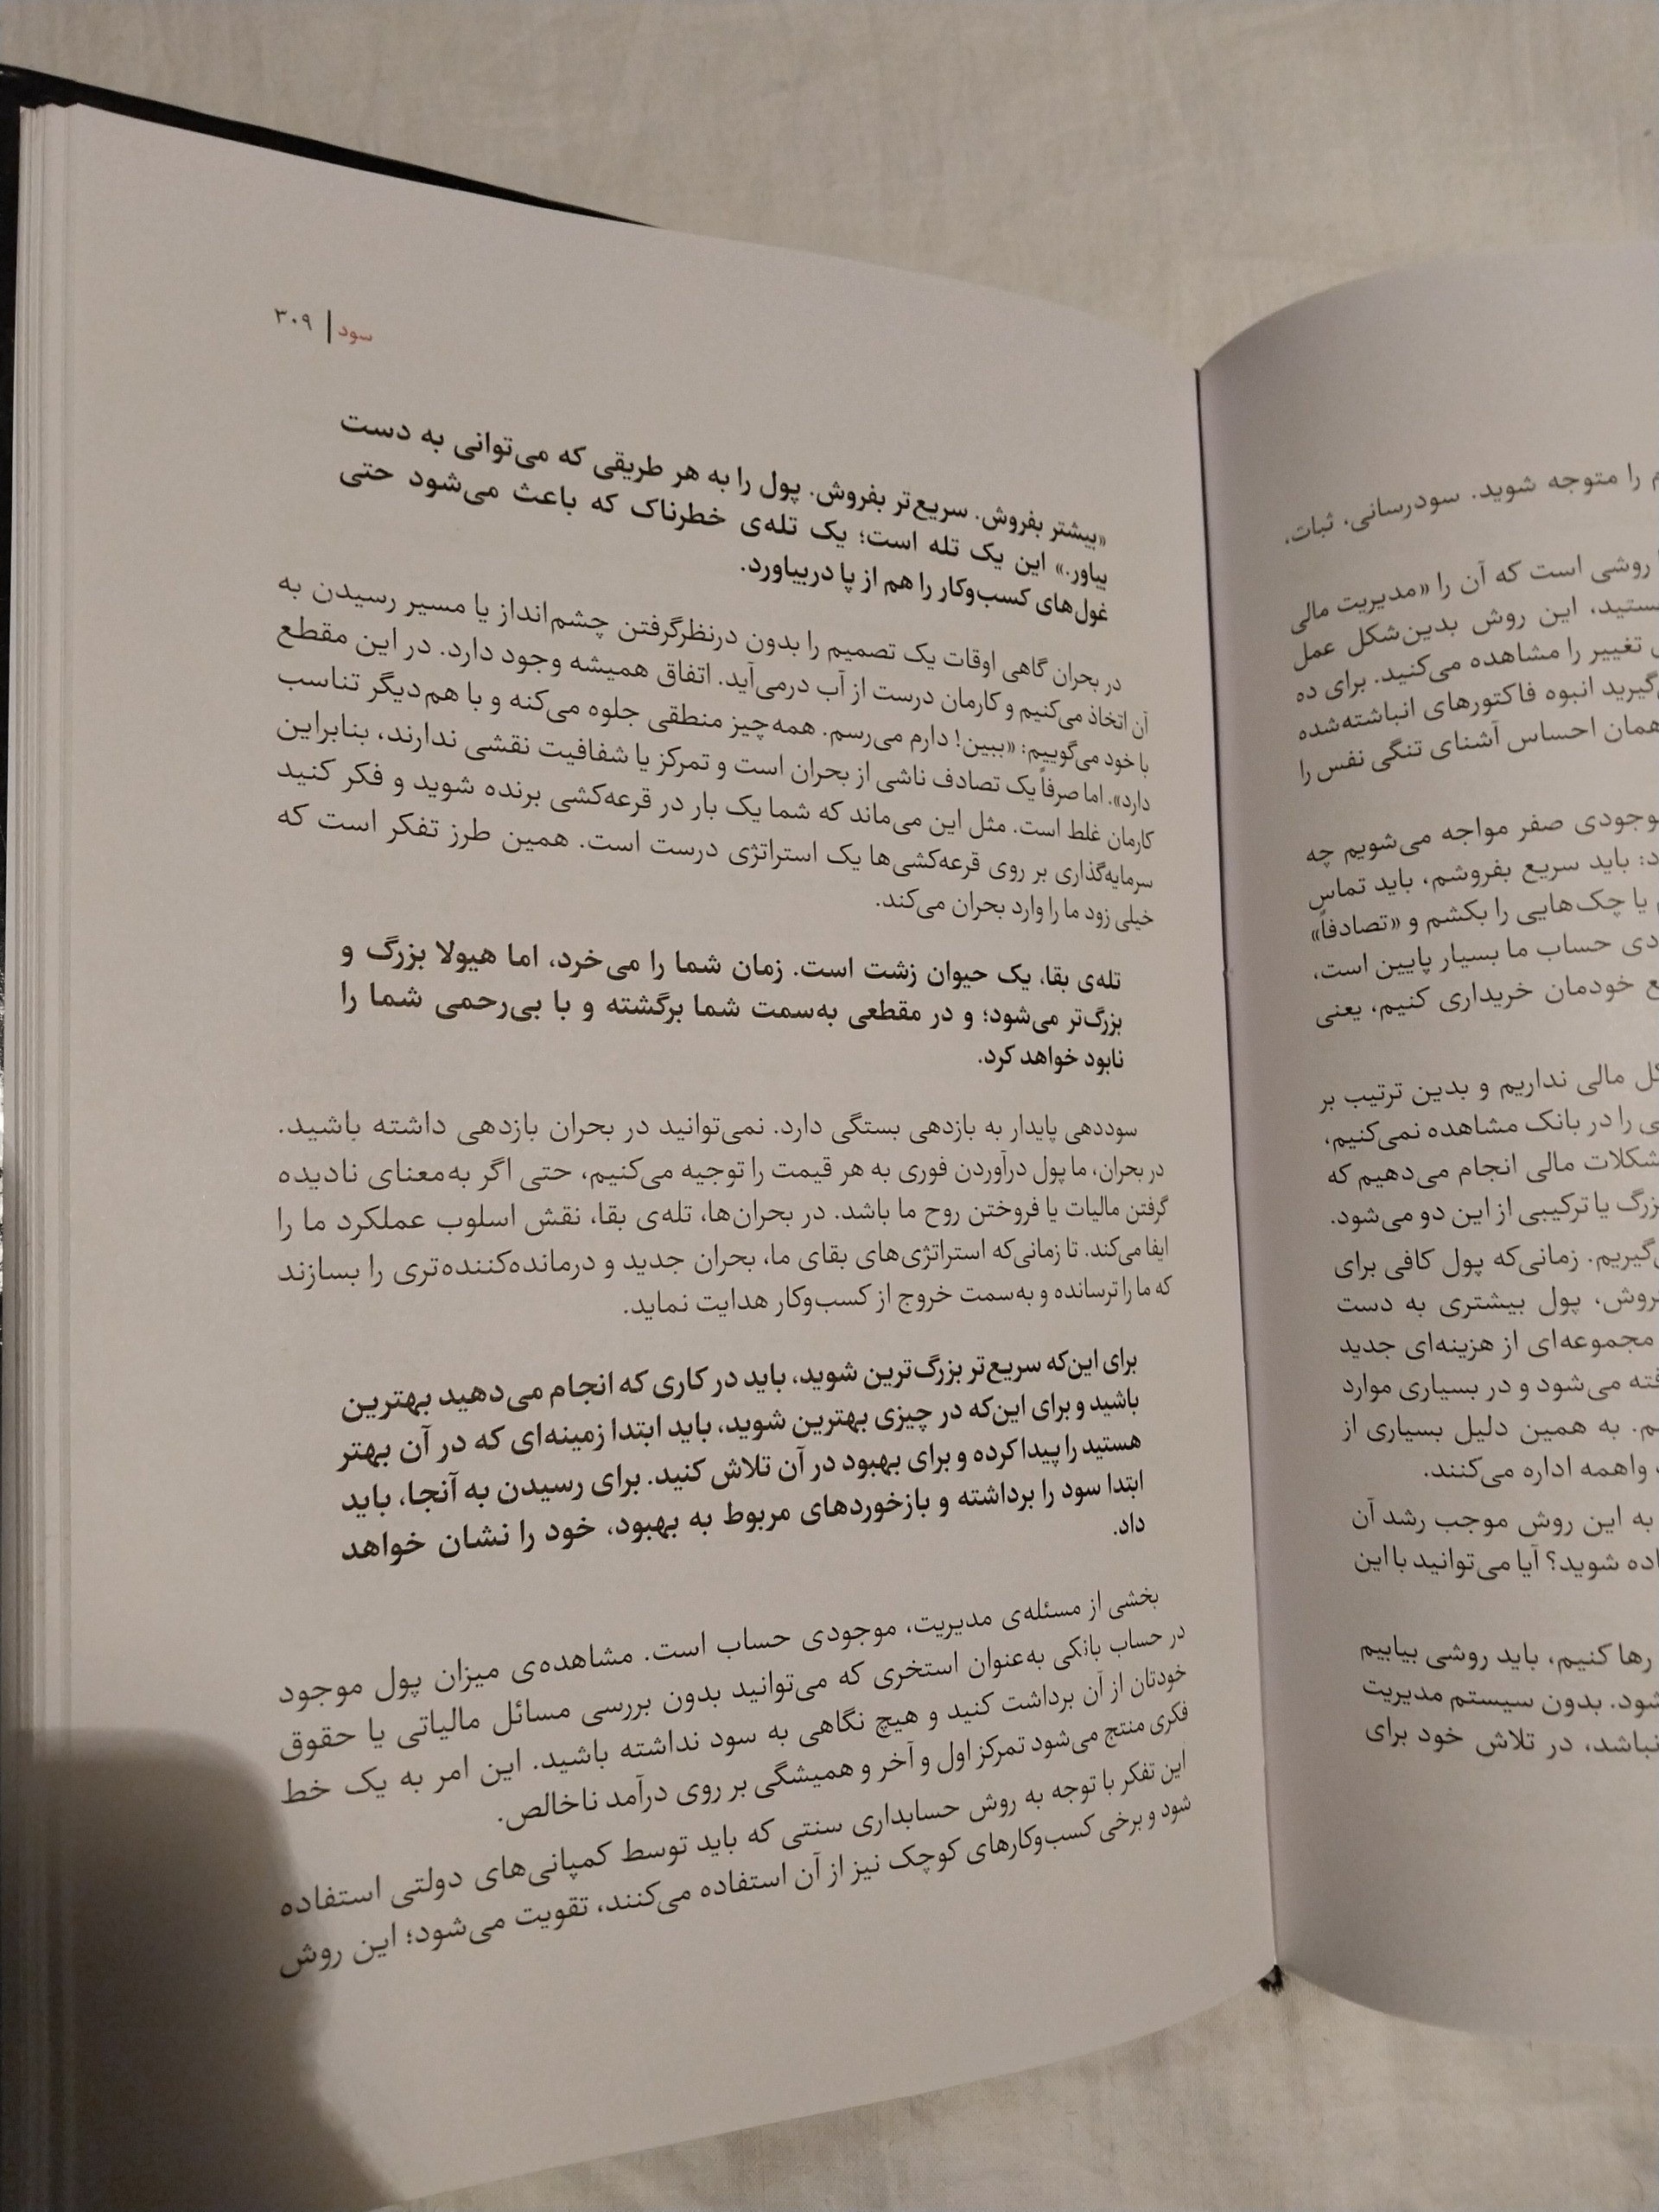 م را متوجه شوید. سودرسانی، ثبات،
روشی است که آن را «مدیریت مالی
این روش بدین‌شکل عمل
تغییر را مشاهده می‌کنید. برای ده
انبوه فاکتورهای انباشته‌شده
همان احساس آشنای تنگی نفس را
صفر مواجه می‌شویم چه
باید سریع بفروشم، باید تماس
یا چک‌هایی را بکشم و «تصادفاً»
حساب ما بسیار پایین است،
خودمان خریداری کنیم، یعنی
مالی نداریم و بدین ترتیب بر
را در بانک مشاهده نمی‌کنیم،
مالی انجام می‌دهیم که
یا ترکیبی از این دو می‌شود.
زمانی‌که پول کافی برای
پول بیشتری به دست
مجموعه‌ای از هزینه‌ای جدید
می‌شود و در بسیاری موارد
به همین دلیل بسیاری از
واهمه اداره می‌کنند.
به این روش موجب رشد آن
شوید؟ آیا می‌توانید با این
رها کنیم، باید روشی بیابیم
بدون سیستم مدیریت
نباشد، در تلاش خود برای
سود | ۳۰۹
«بیشتر بفروش. سریع‌تر بفروش. پول را به هر طریقی که می‌توانی به دست
بیاور.» این یک تله است؛ یک تله‌ی خطرناک که باعث می‌شود حتی
غول‌های کسب‌وکار را هم از پا دربیاورد.
در بحران گاهی اوقات یک تصمیم را بدون درنظرگرفتن چشم‌انداز یا مسیر رسیدن به
آن اتخاذ می‌کنیم و کارمان درست از آب درمی‌آید. اتفاق همیشه وجود دارد. در این مقطع
با خود می‌گوییم: «ببین! دارم می‌رسم. همه‌چیز منطقی جلوه می‌کنه و با هم‌دیگر تناسب
دارد». اما صرفاً یک تصادف ناشی از بحران است و تمرکز یا شفافیت نقشی ندارند، بنابراین
کارمان غلط است. مثل این می‌ماند که شما یک بار در قرعه‌کشی برنده شوید و فکر کنید
سرمایه‌گذاری بر روی قرعه‌کشی‌ها یک استراتژی درست است. همین طرز تفکر است که
خیلی زود ما را وارد بحران می‌کند.
تله‌ی بقا، یک حیوان زشت است. زمان شما را می‌خرد، اما هیولا بزرگ و
بزرگ‌تر می‌شود؛ و در مقطعی به‌سمت شما برگشته و با بی‌رحمی شما را
نابود خواهد کرد.
سوددهی پایدار به بازدهی بستگی دارد. نمی‌توانید در بحران بازدهی داشته باشید.
در بحران، ما پول درآوردن فوری به هر قیمت را توجیه می‌کنیم، حتی اگر به‌معنای نادیده
گرفتن مالیات یا فروختن روح ما باشد. در بحران‌ها، تله‌ی بقا، نقش اسلوب عملکرد ما را
ایفا می‌کند. تا زمانی‌که استراتژی‌های بقای ما، بحران جدید و درمانده‌کننده‌تری را بسازند
که ما را ترسانده و به‌سمت خروج از کسب‌وکار هدایت نماید.
برای این‌که سریع‌تر بزرگ‌ترین شوید، باید در کاری که انجام می‌دهید بهترین
باشید و برای این‌که در چیزی بهترین شوید، باید ابتدا زمینه‌ای که در آن بهتر
هستید را پیدا کرده و برای بهبود در آن تلاش کنید. برای رسیدن به آنجا، باید
ابتدا سود را برداشته و بازخوردهای مربوط به بهبود، خود را نشان خواهد
داد.
بخشی از مسئله‌ی مدیریت، موجودی حساب است. مشاهده‌ی میزان پول موجود
در حساب بانکی به‌عنوان استخری که می‌توانید بدون بررسی مسائل مالیاتی یا حقوق
خودتان از آن برداشت کنید و هیچ نگاهی به سود نداشته باشید. این امر به یک خط
فکری منتج می‌شود تمرکز اول و آخر و همیشگی بر روی درآمد ناخالص.
این تفکر با توجه به روش حسابداری سنتی که باید توسط کمپانی‌های دولتی استفاده
شود و برخی کسب‌وکارهای کوچک نیز از آن استفاده می‌کنند، تقویت می‌شود؛ این روش